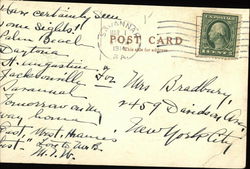 Have certainly seen
some sights
Palm Beach
Daytona
St. Augustine
Jacksonville
Savannah
Tomorrow on
way home
Love to
M.T.W.
SAVANNAH
POST CARD
Mrs Bradbury,
2459 Davidson Ave
New York City